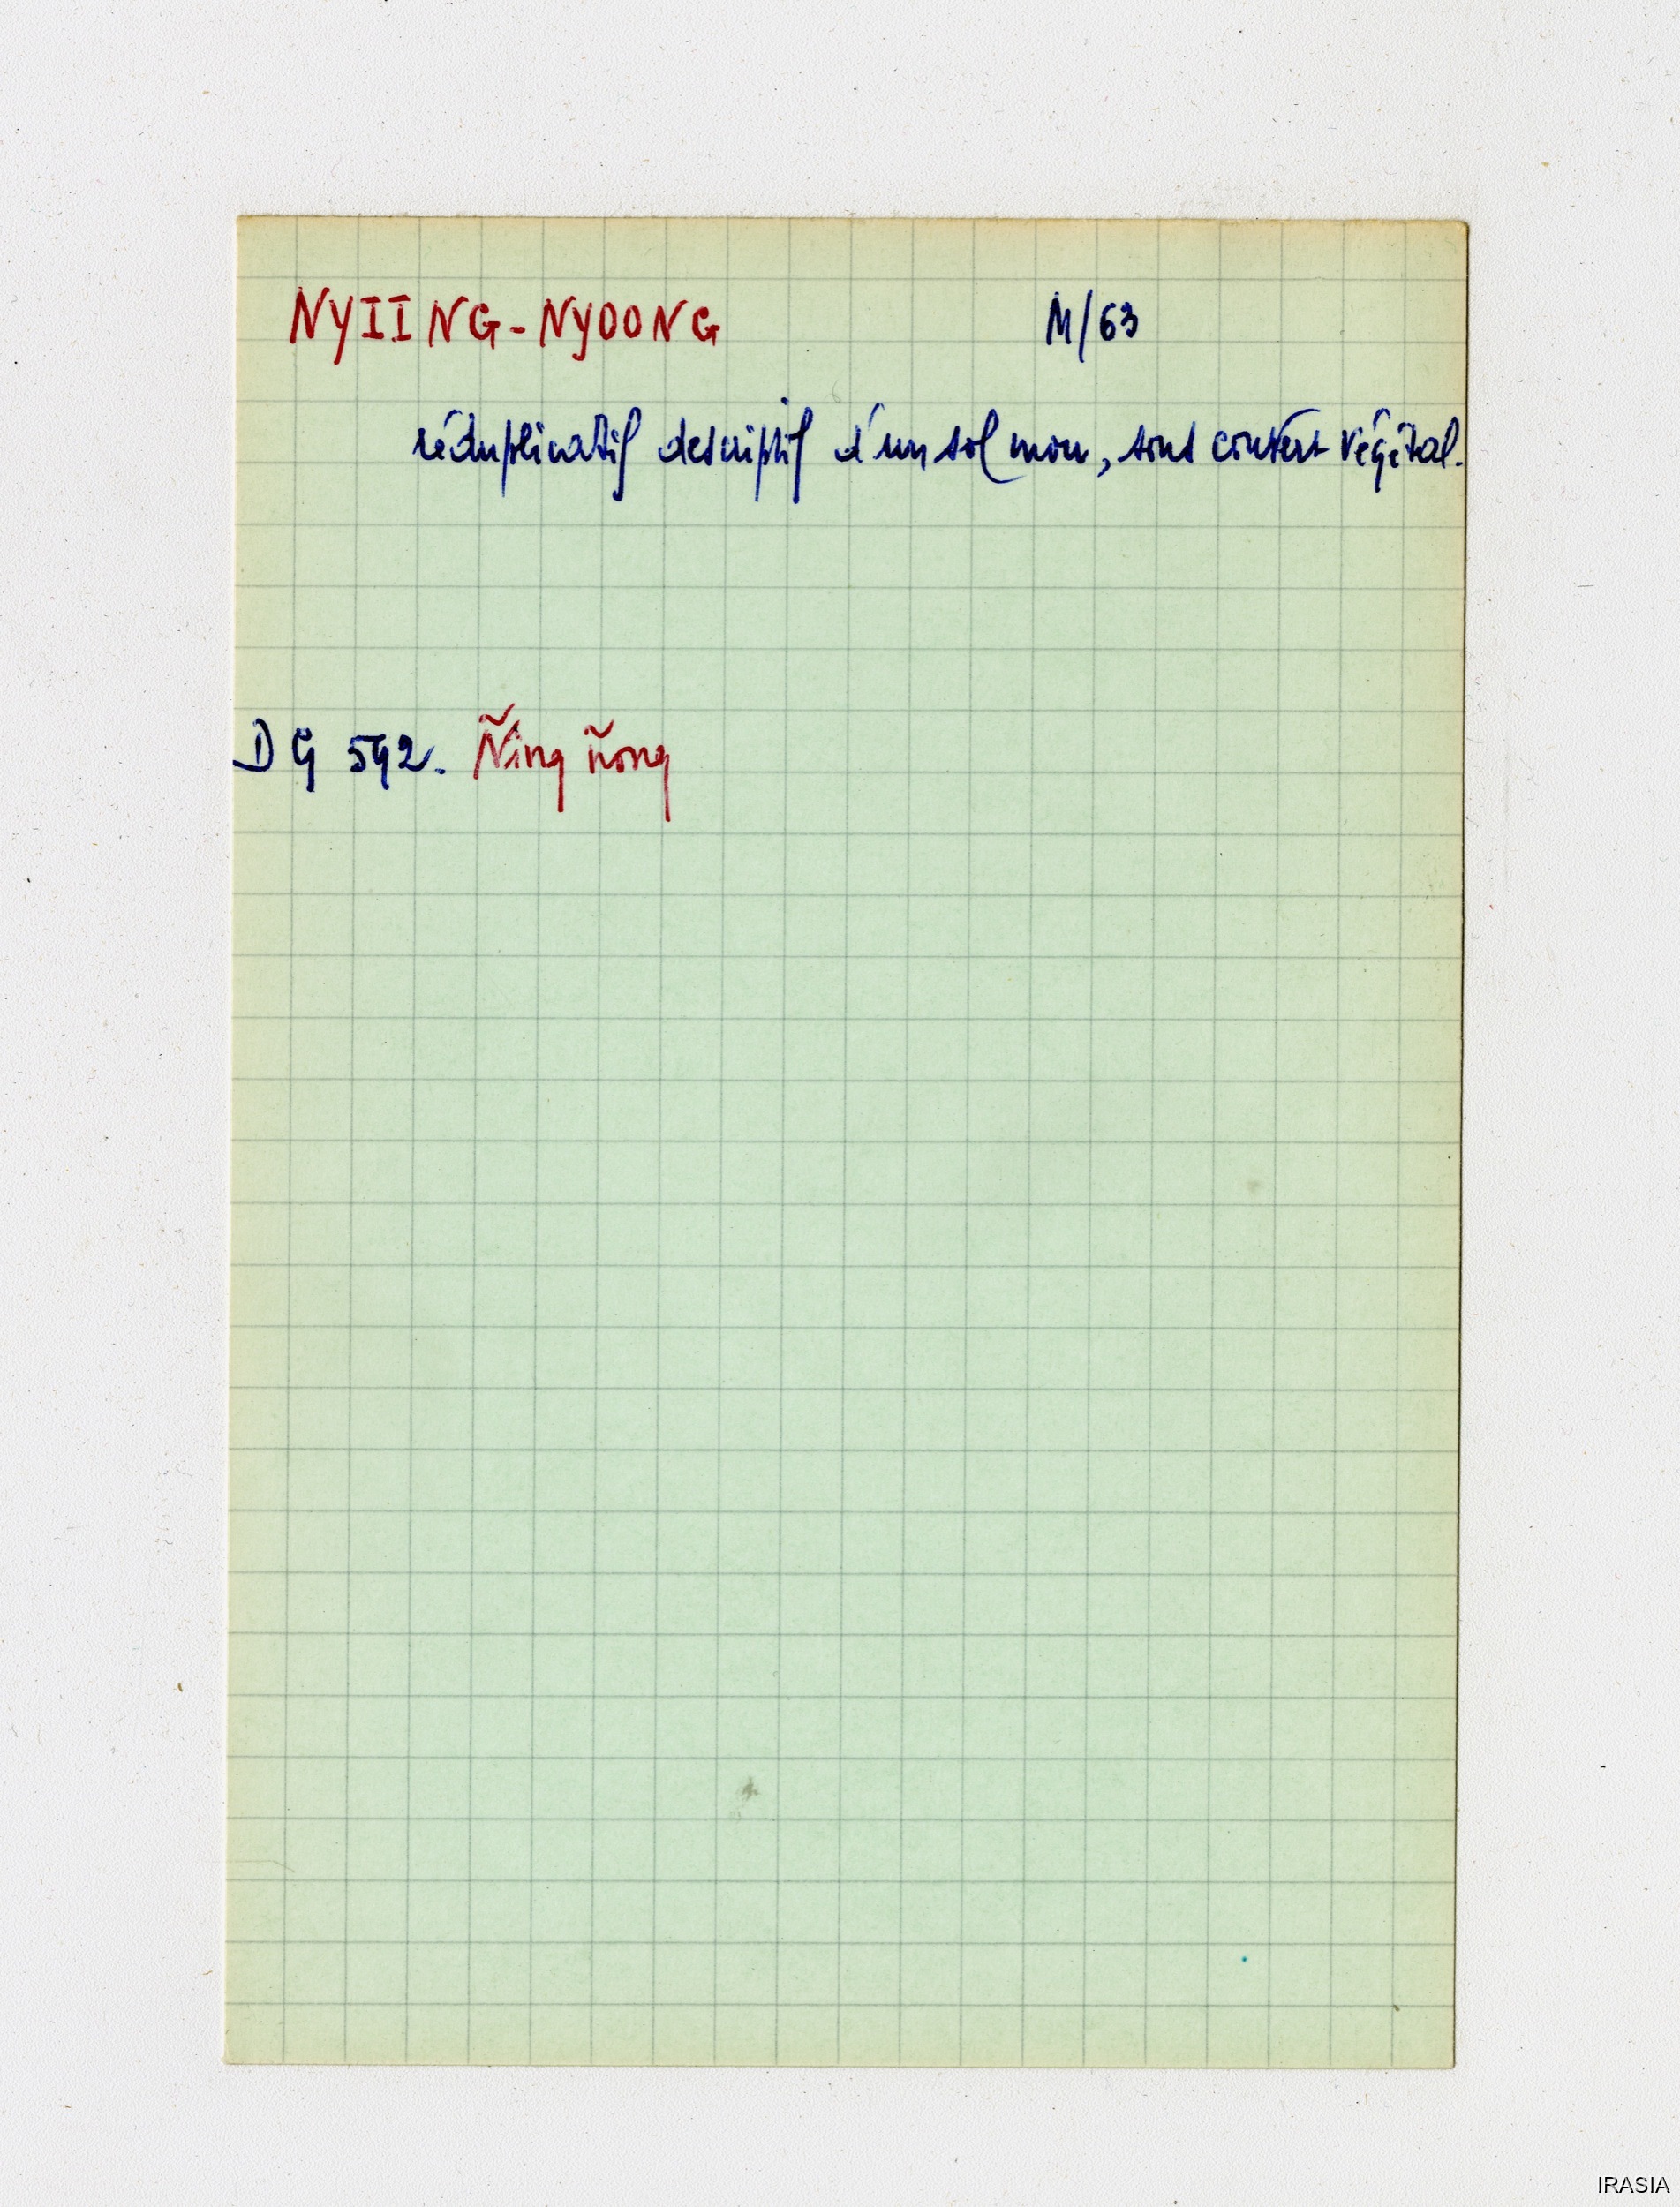 NYIING-NYOONG M/63
réduplicatif descriptif d'un sol mou, sous couvert végétal.
DG 592. Ñing ñong
IRASIA